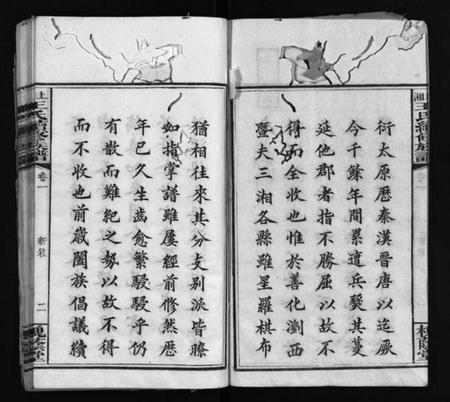 衍太原歷秦漢晉唐以迄厥
今千餘年間累遭兵燹其蔓
延他郡者指不勝屈以故不
得而全收也惟於善化瀏西
暨夫三湘各縣雖星羅棋布
猶相往來其分支別派皆瞭
如指掌譜雖屢經前修然歷
年已久生齒愈繁駸駸乎仍
有散而難紀之勢以故不得
而不收也前歲闔族倡議續
上湘王氏續修族譜
卷一
新敘
二
槐蔭堂